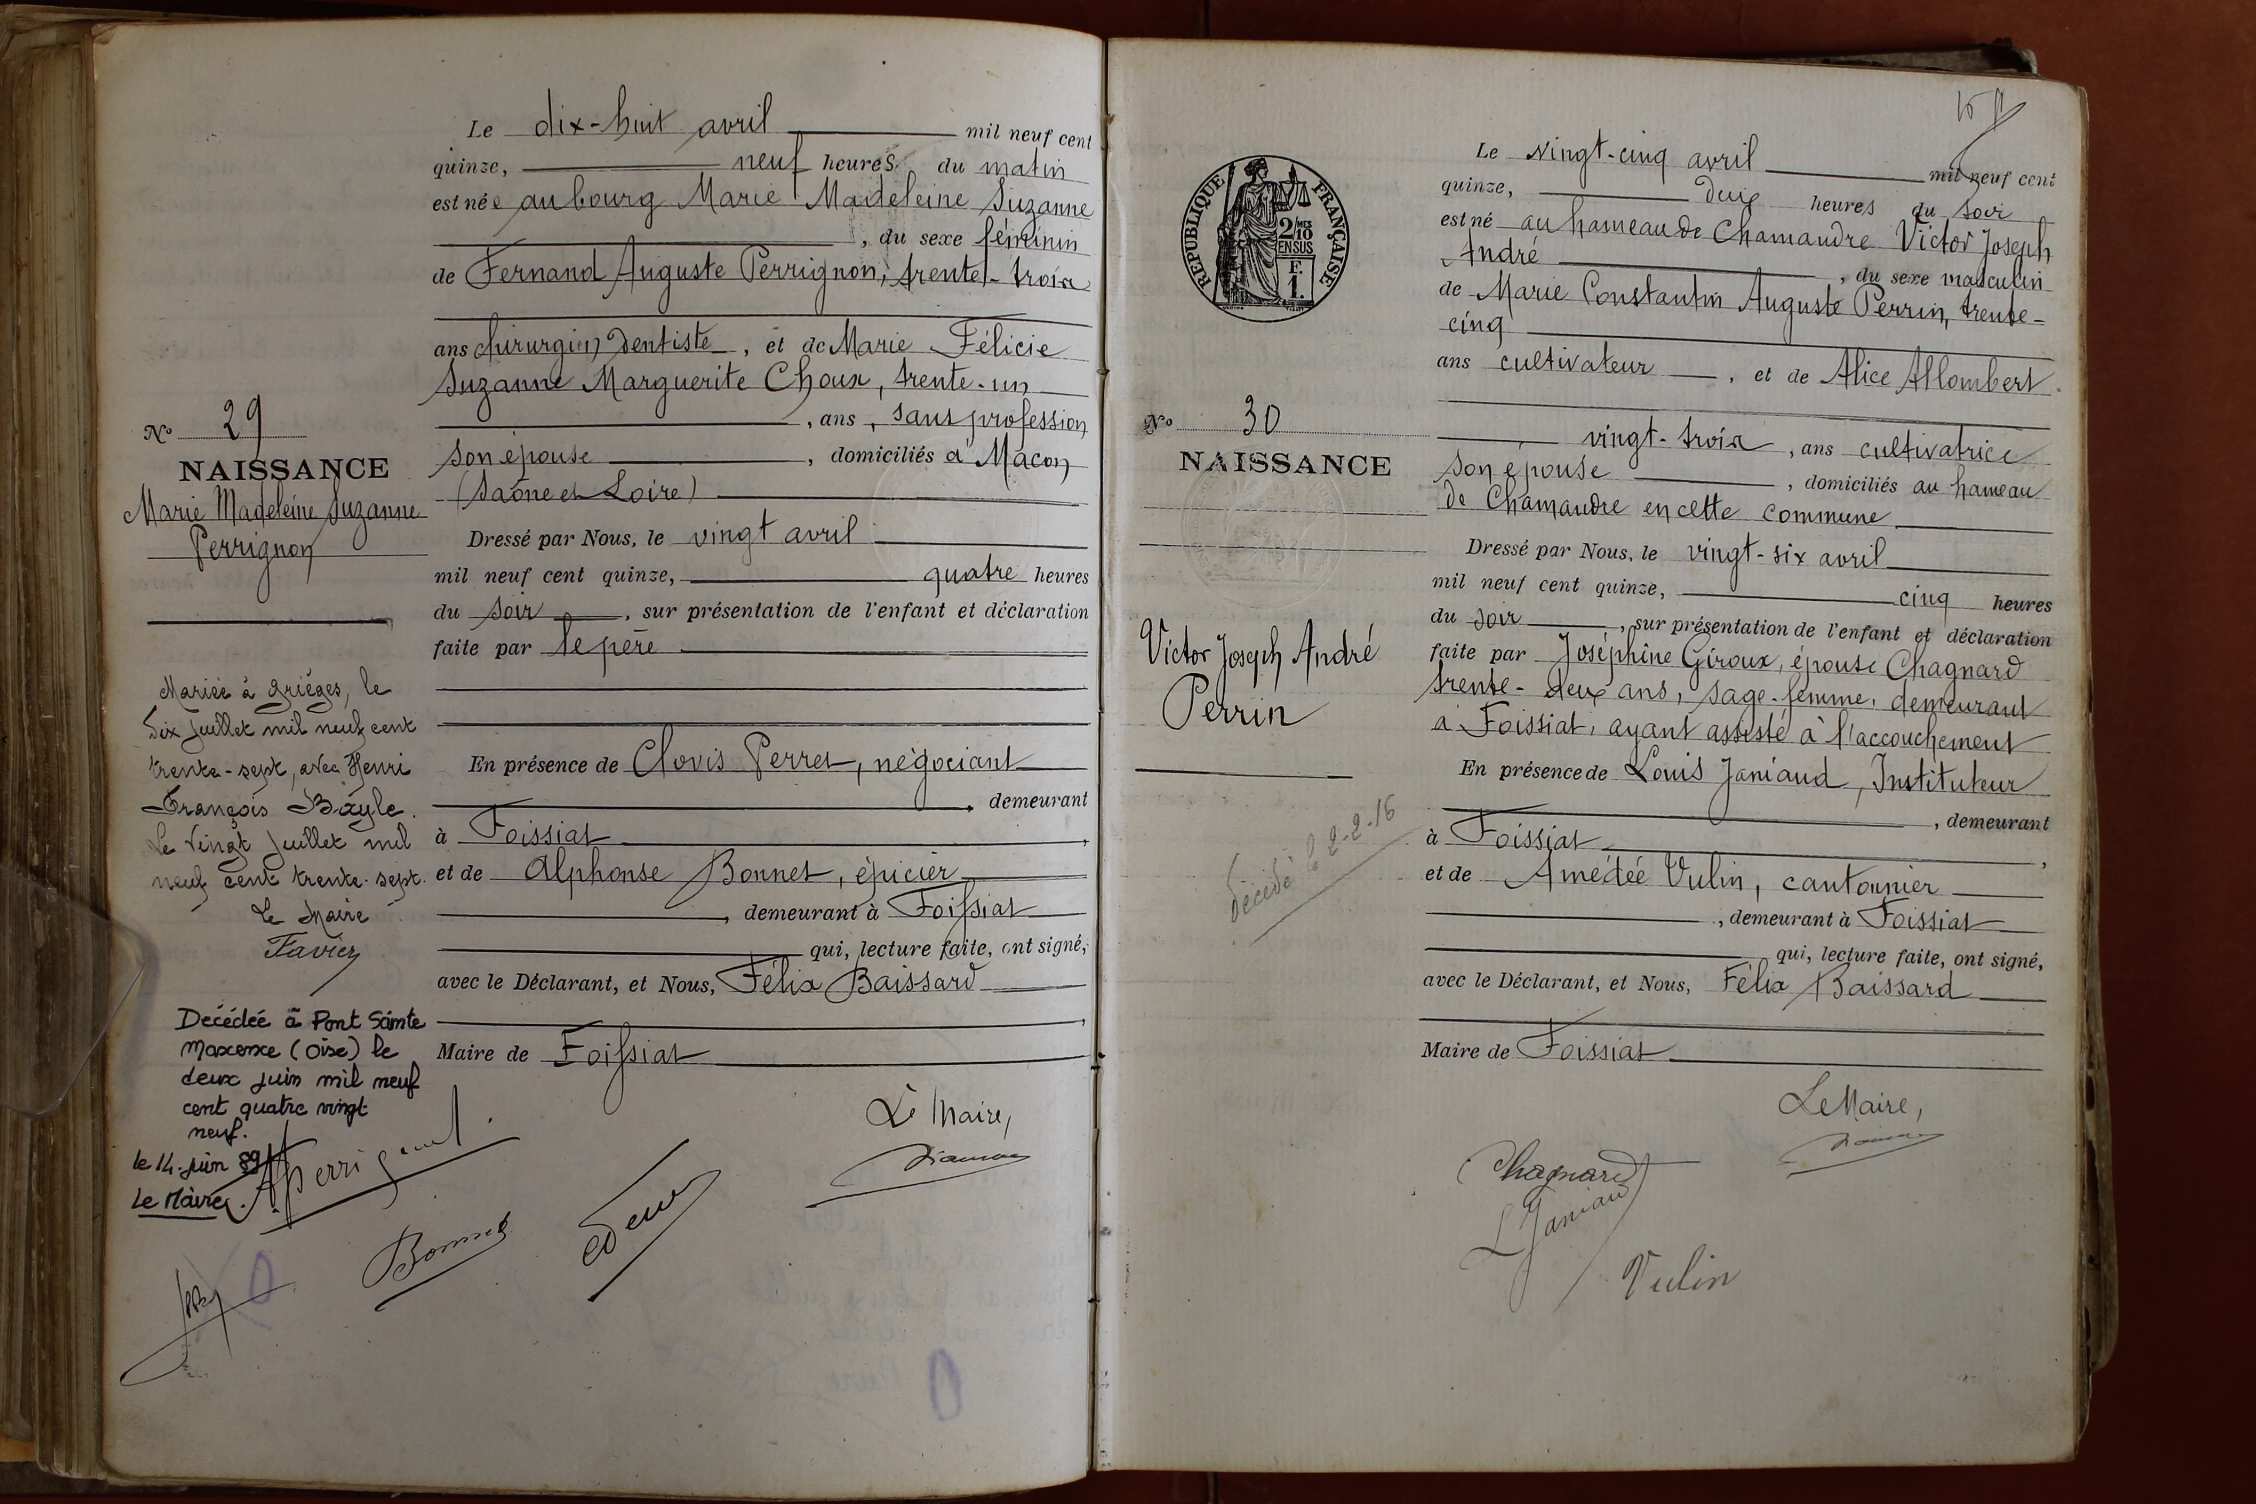 Le dix-huit avril mil neuf cent
quinze, neuf heures du matin
est née au bourg Marie Madeleine Suzanne
, du sexe féminin
de Fernand Auguste Perrignon, trente-trois
ans chirurgien Dentiste, et de Marie Félicie
Suzanne Marguerite Choux, trente-un
, ans, sans profession
son épouse, domiciliés à Macon
(Saône et Loire)
Dressé par Nous, le vingt avril
mil neuf cent quinze, quatre heures
du soir, sur présentation de l'enfant et déclaration
faite par le père
En présence de Clovis Perret, négociant
, demeurant
à Foissiat,
et de Alphonse Bonnet, épicier
, demeurant à Foissiat
qui, lecture faite, ont signé,
avec le Déclarant, et Nous, Félix Baissard
,
Maire de Foissiat
Le Maire,
Bonnet
No 29
NAISSANCE
Marie Madeleine Suzanne
Perrignon
Mariée à Grièges, le
dix juillet mil neuf cent
trente-sept, avec Henri
François Bayle.
Le vingt juillet mil
neuf cent trente-sept.
Le Maire
Favier
Decédeé à Pont Sainte
Maxence (Oise) le
deux juin mil neuf
cent quatre vingt
neuf.
le 14 juin 89
Le Maire.
RÉPUBLIQUE FRANÇAISE
2/10 MES
EN SUS
F.
1.
Le vingt-cinq avril mil neuf cent
quinze, deux heures du soir
est né au hameau de Chamandre Victor Joseph
André, du sexe masculin
de Marie Constantin Auguste Perrin, trente-
cinq
ans cultivateur, et de Alice Allombert
vingt-trois, ans cultivatrice
son épouse, domiciliés au hameau
de Chamandre en cette commune
Dressé par Nous, le vingt-six avril
mil neuf cent quinze, cinq heures
du soir, sur présentation de l'enfant et déclaration
faite par Joséphine Giroux, épouse Chagnard
trente-deux ans, sage-femme, demeurant
à Foissiat, ayant assisté à l'accouchement
En présence de Louis Janiaud, Instituteur
, demeurant
à Foissiat,
et de Amédée Vulin, cantonnier
, demeurant à Foissiat
qui, lecture faite, ont signé,
avec le Déclarant, et Nous, Félix Baissard
Maire de Foissiat
Le Maire,
Chagnard
L Janiaud
Vulin
No 30
NAISSANCE
Victor Joseph André
Perrin
Décédé le 2-2-16